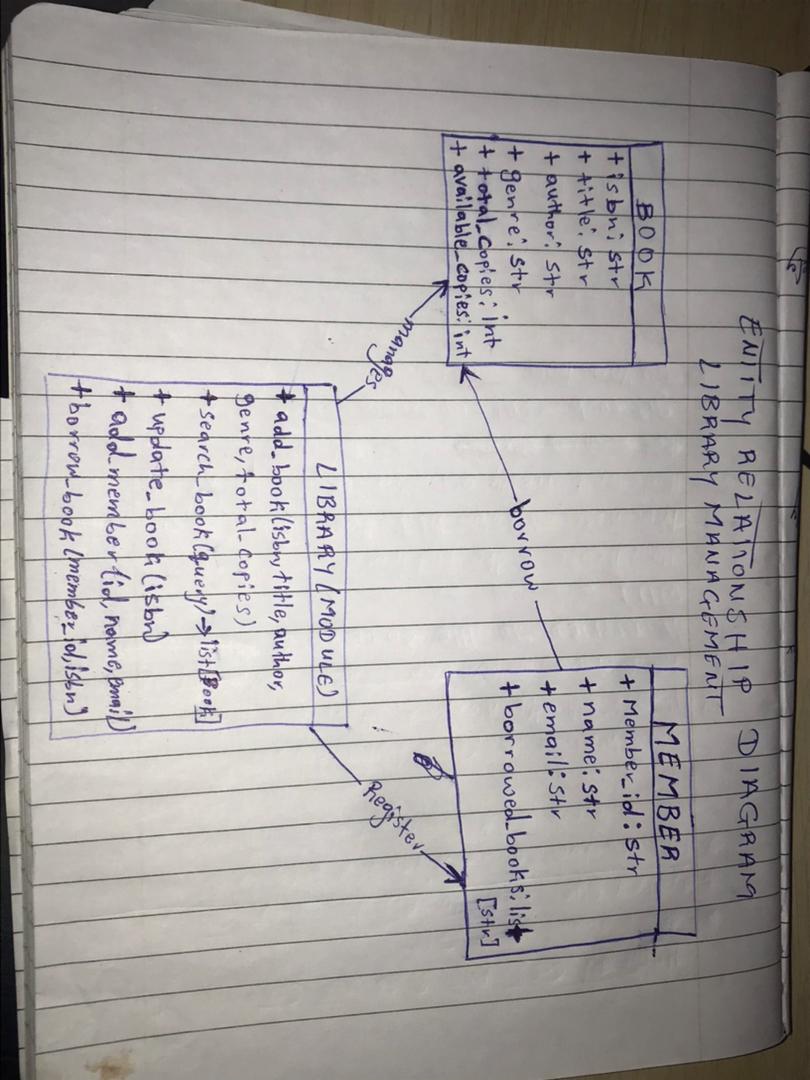 ENTITY RELATIONSHIP DIAGRAM
LIBRARY MANAGEMENT
BOOK
+ isbn: str
+ title: str
+ author: str
+ genre: str
+ total_copies: int
+ available_copies: int
borrow
MEMBER
+ Member_id: str
+ name: str
+ email: str
+ borrowed_books: list
[str]
manages
Register
LIBRARY (MODULE)
+ add_book(isbn, title, author,
genre, total_copies)
+ search_book(query) → list[Book]
+ update_book(isbn)
+ add_member(id, name, email)
+ borrow_book(member_id, isbn)